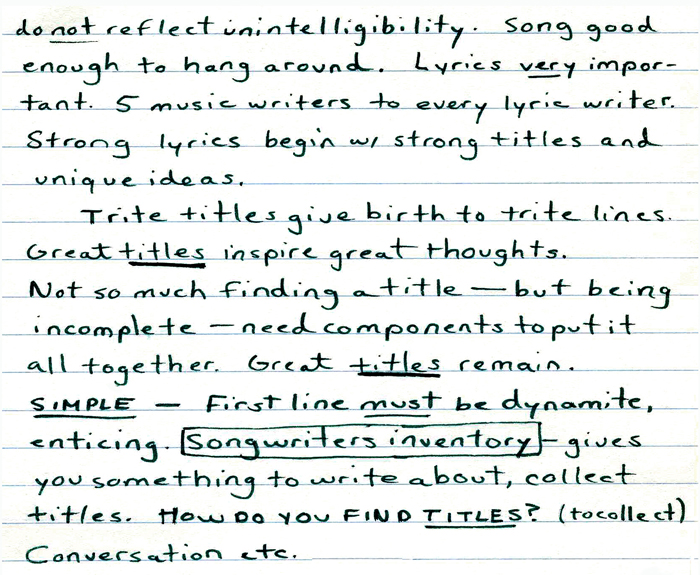 do not reflect unintelligibility. Song good
enough to hang around. Lyrics very impor-
tant. 5 music writers to every lyric writer.
Strong lyrics begin w/ strong titles and
unique ideas.
Trite titles give birth to trite lines.
Great titles inspire great thoughts.
Not so much finding a title — but being
incomplete — need components to put it
all together. Great titles remain.
SIMPLE — First line must be dynamite,
enticing. Songwriters inventory - gives
you something to write about, collect
titles. HOW DO YOU FIND TITLES? (to collect)
Conversation etc.